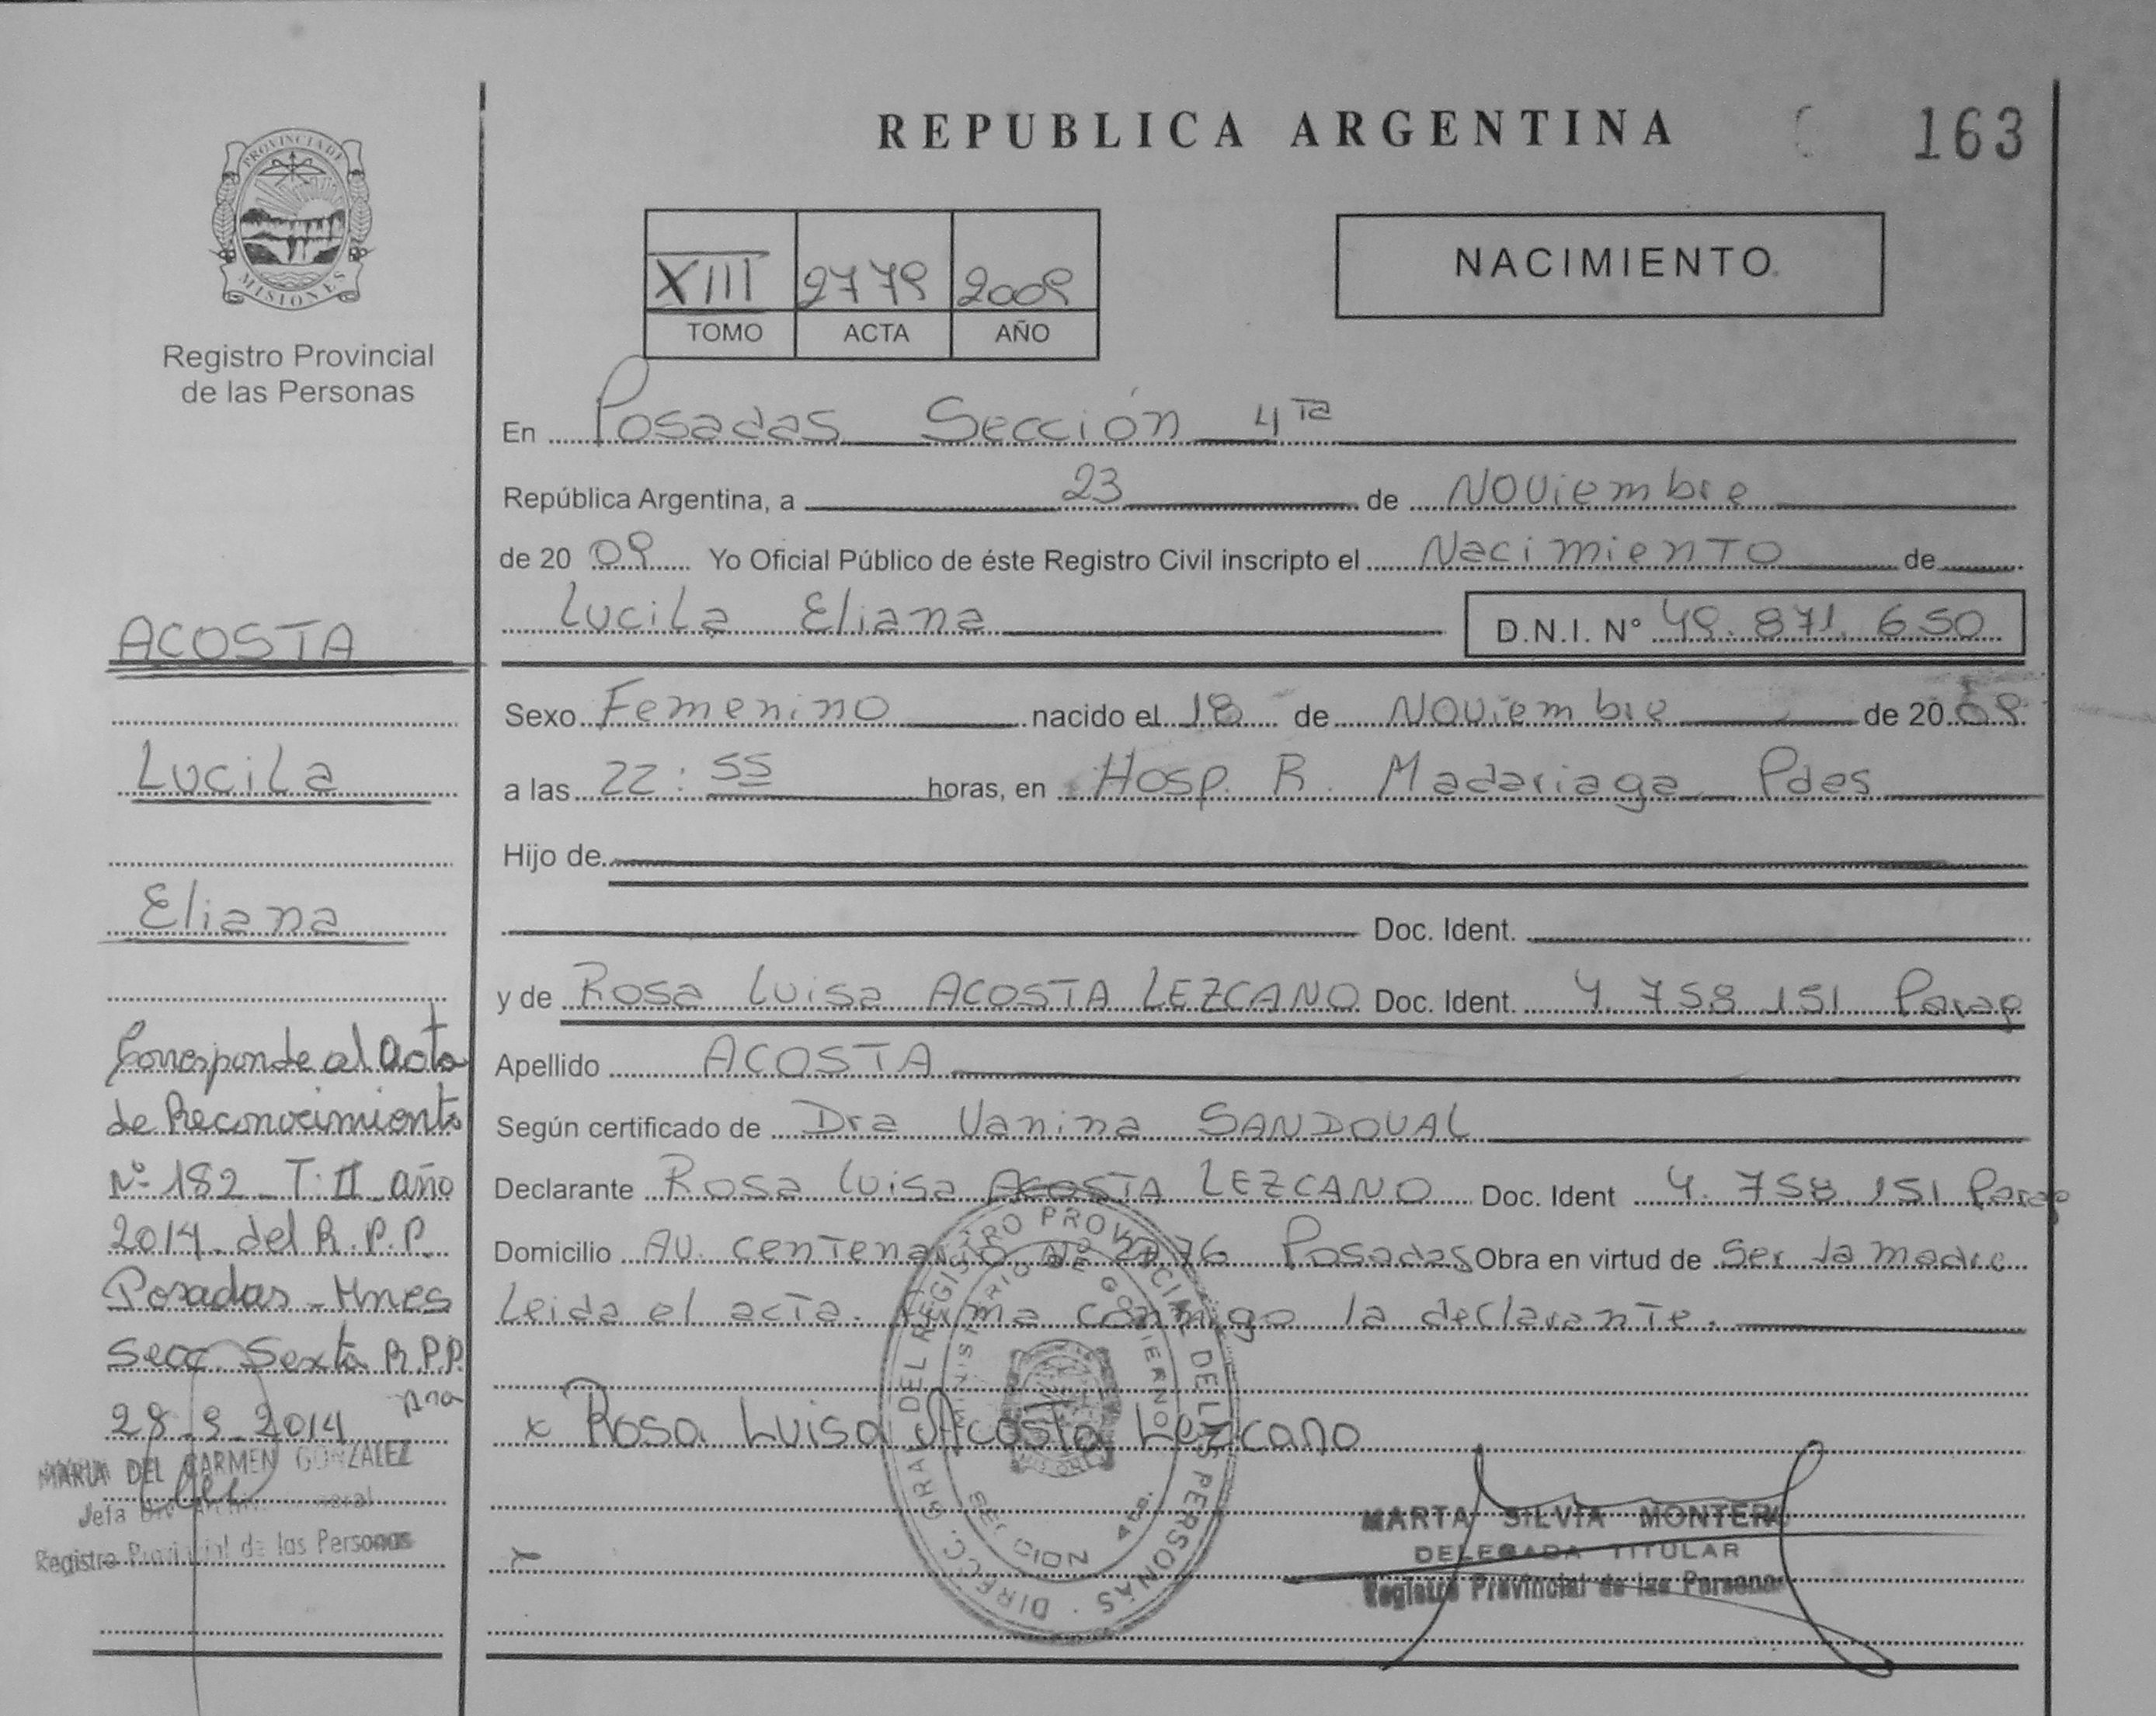 REPUBLICA ARGENTINA
163
PROVINCIA DE
MISIONES
Registro Provincial
de las Personas
XIII 2779 2009
TOMO ACTA AÑO
NACIMIENTO
En Posadas Sección 4ta
República Argentina, a 23 de Noviembre
de 2009 Yo Oficial Público de éste Registro Civil inscripto el Nacimiento de
Lucila Eliana D.N.I. N° 49.871.650
Sexo Femenino nacido el 18 de Noviembre de 2009
a las 22:55 horas, en Hosp. R. Madariaga Pdas
Hijo de
Doc. Ident.
y de Rosa Luisa ACOSTA LEZCANO Doc. Ident. 4.758.151 Parag
Apellido ACOSTA
Según certificado de Dra Vanina SANDOVAL
Declarante Rosa Luisa ACOSTA LEZCANO Doc. Ident 4.758.151 Parag
Domicilio Av. Centenario Nº 2776 Posadas Obra en virtud de Ser la madre
Leida el acta. Firma conmigo la declarante.
x Rosa Luisa Acosta Lezcano
DIRECC. GRAL DEL REGISTRO PROVINCIAL DE LAS PERSONAS
MINISTERIO DE GOBIERNO
SECCION 4ta.
MARTA SILVIA MONTERO
DELEGADA TITULAR
Registro Provincial de las Personas
ACOSTA
Lucila
Eliana
Corresponde al Acta
de Reconocimiento
Nº 182 - T: II año
2014 del R.P.P.
Posadas - Mnes
Secc. Sexta R.P.P.
28-9-2014
MARIA DEL CARMEN GONZALEZ
Jefa
Registro Provincial de las Personas